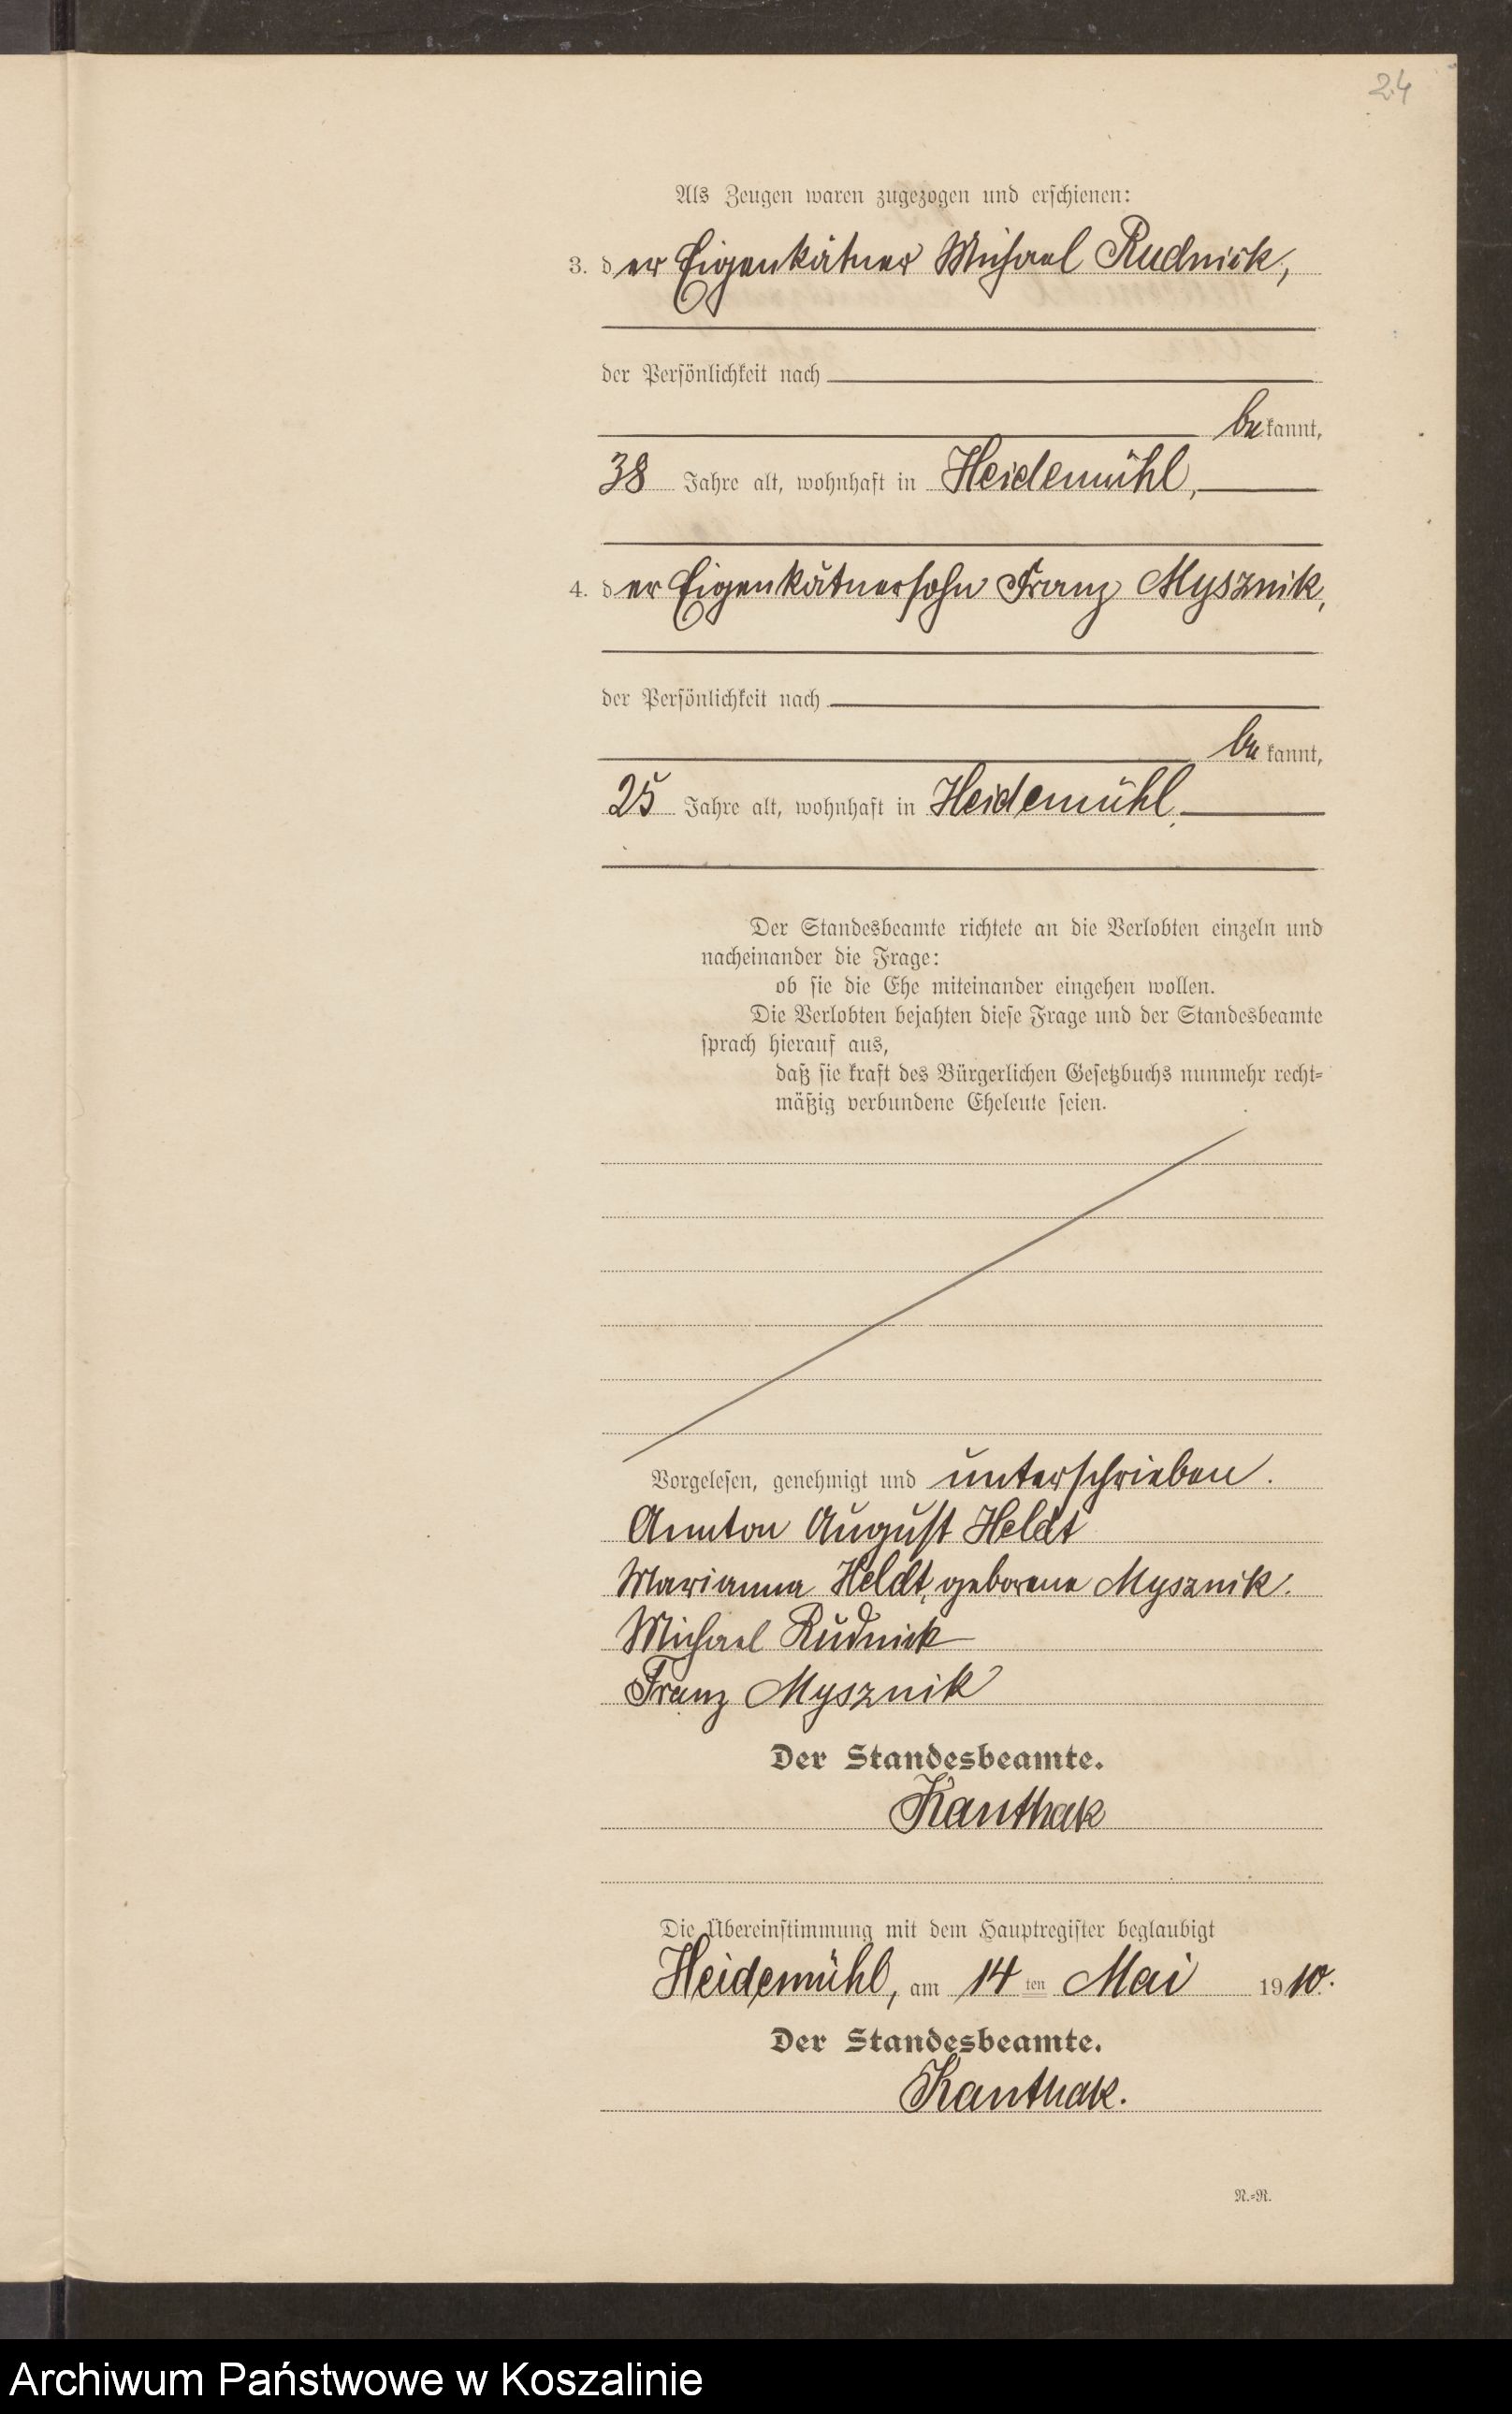 24
Als Zeugen waren zugezogen und erschienen:
3. der Eigenkätner Michael Rudnick,
der Persönlichkeit nach
bekannt,
38 Jahre alt, wohnhaft in Heidemühl,
4. der Eigenkätnersohn Franz Mysznik,
der Persönlichkeit nach
bekannt,
25 Jahre alt, wohnhaft in Heidemühl.
Der Standesbeamte richtete an die Verlobten einzeln und
nacheinander die Frage:
ob sie die Ehe miteinander eingehen wollen.
Die Verlobten bejahten diese Frage und der Standesbeamte
sprach hierauf aus,
daß sie kraft des Bürgerlichen Gesetzbuchs nunmehr recht=
mäßig verbundene Eheleute seien.
Vorgelesen, genehmigt und unterschrieben.
Annton August Heldt
Marianna Heldt, geborene Mysznik.
Michael Rudnick
Franz Mysznik
Der Standesbeamte.
Kanthak
Die Übereinstimmung mit dem Hauptregister beglaubigt
Heidemühl, am 14ten Mai 1910.
Der Standesbeamte.
Kanthak.
N.=R.
Archiwum Państwowe w Koszalinie